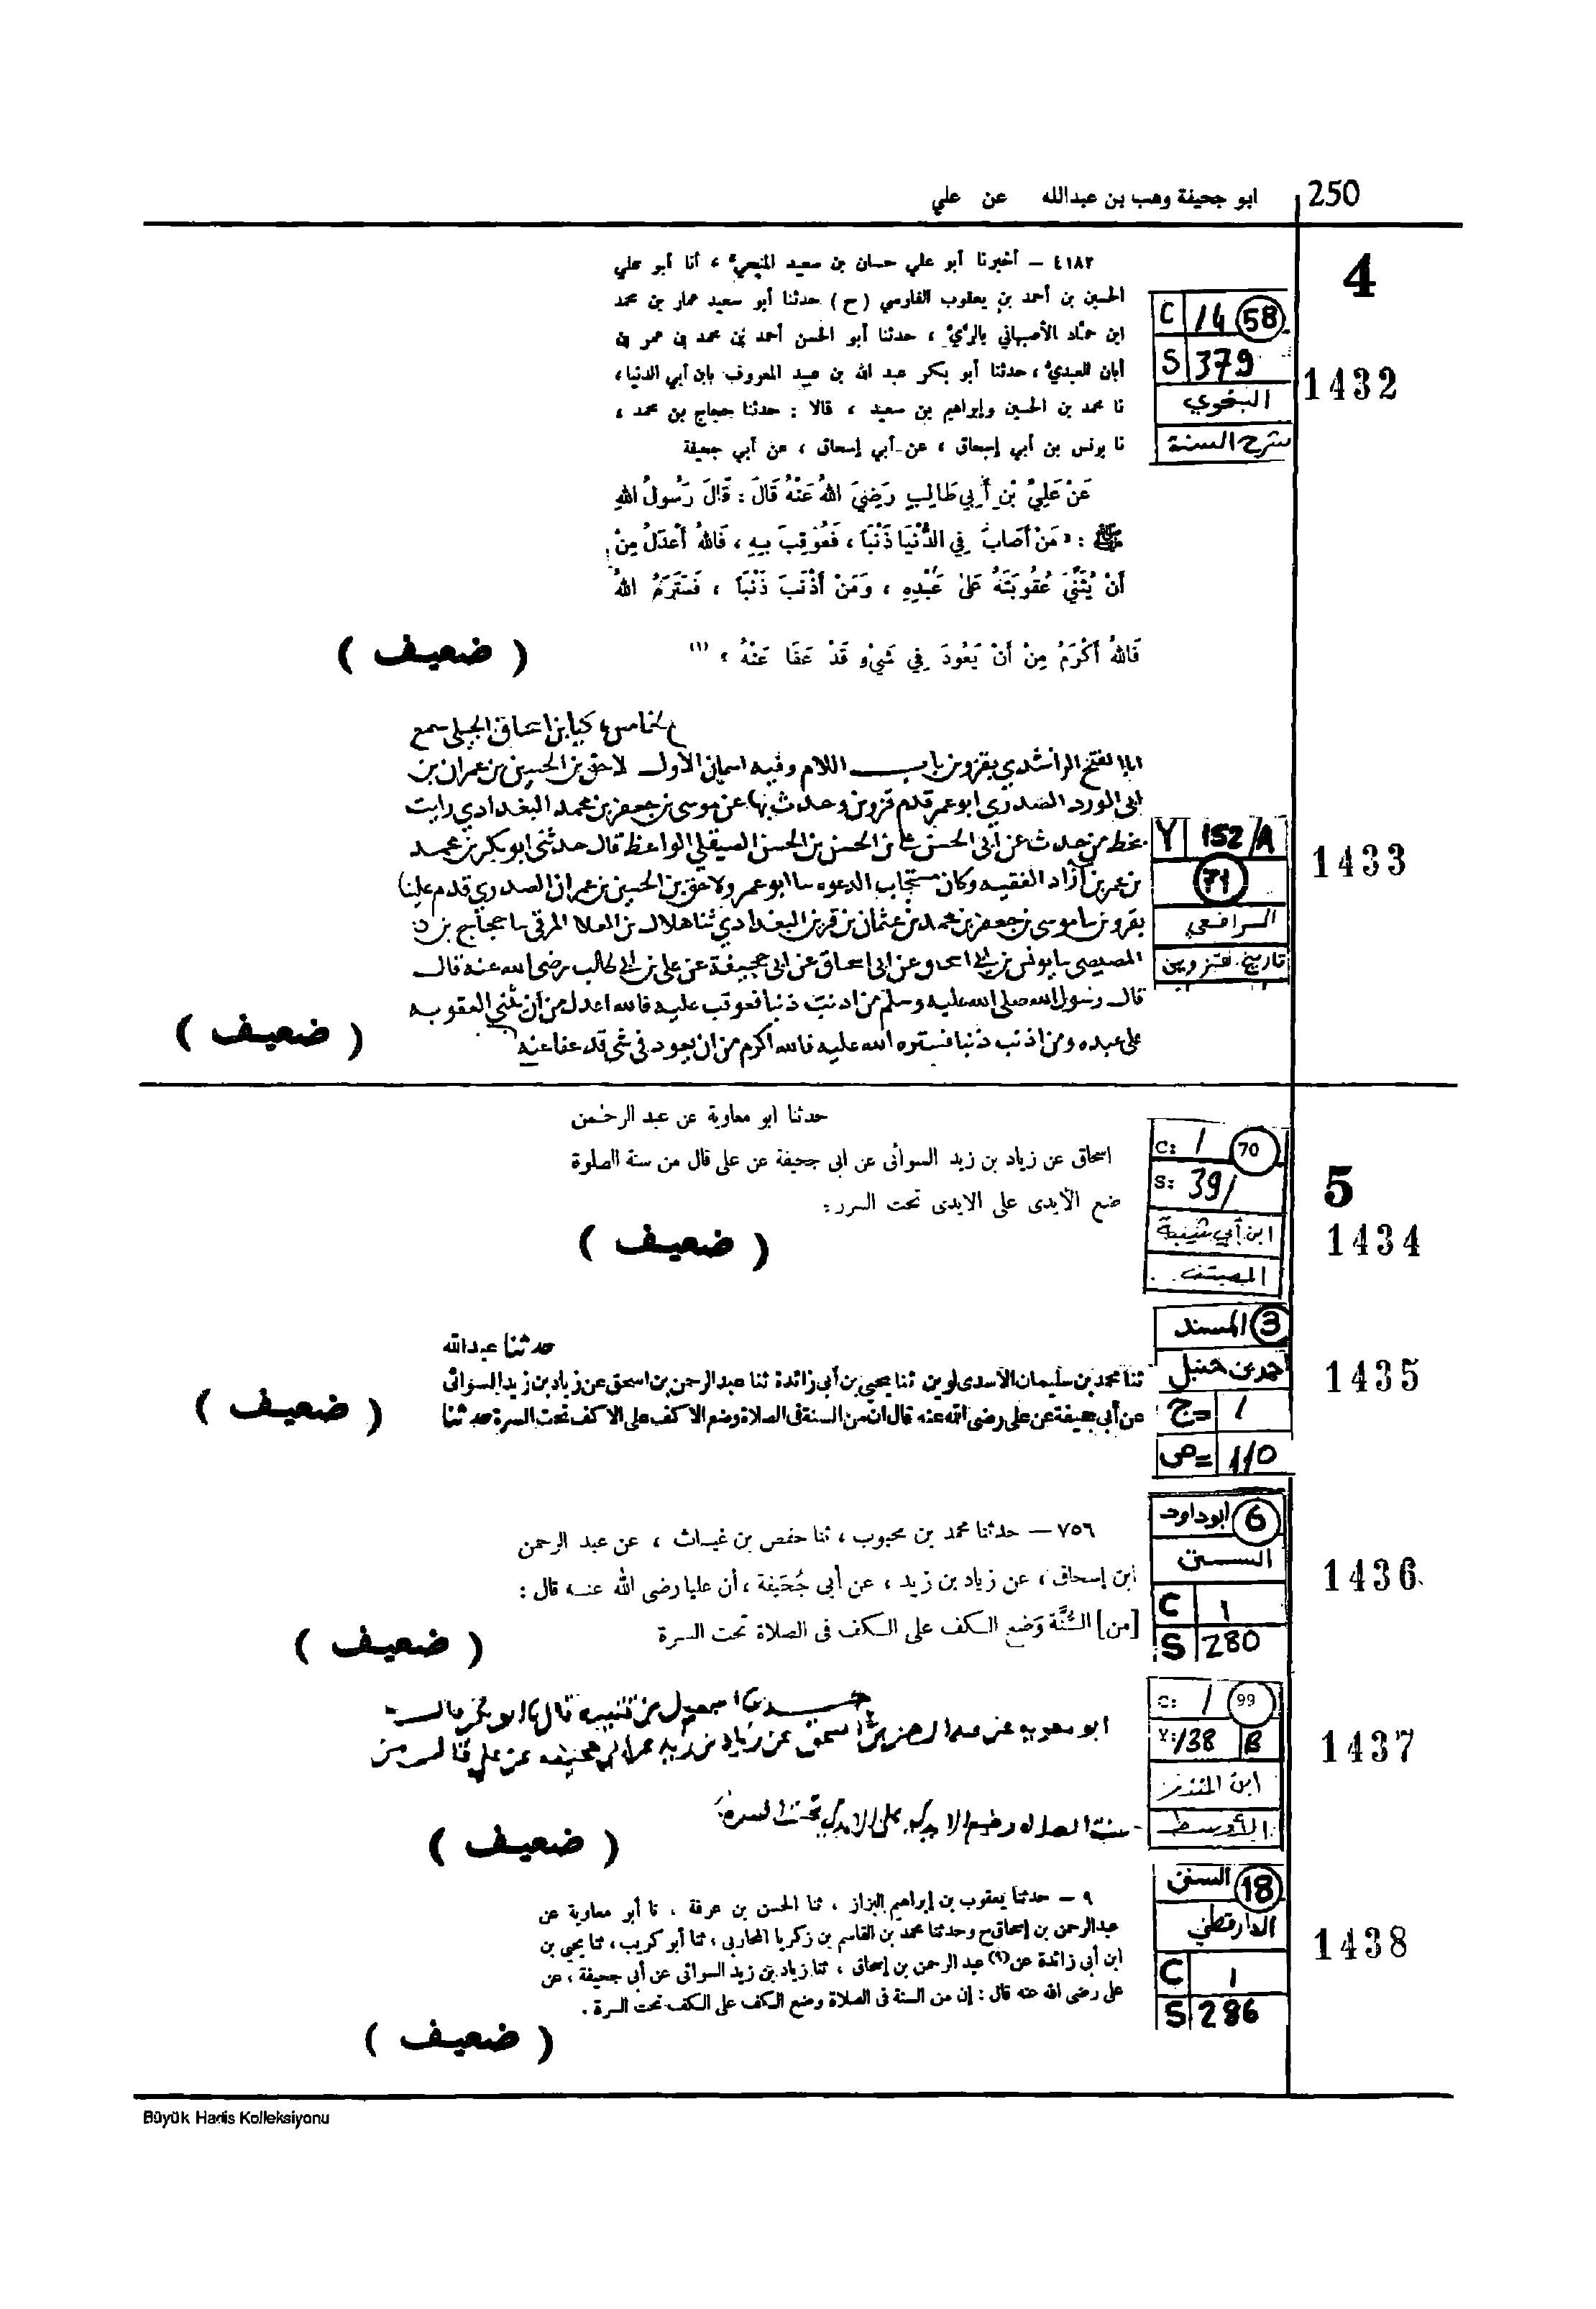 250
ابو جحيفة وهب بن عبدالله عن علي
4
1432
C 14 58
S 379
البغوي
شرح السنة
٤١٨٢ – أخبرنا أبو علي حسان بن سعيد المنيعي ، أنا أبو علي
الحسين بن أحمد بن يعقوب الفارسي (ح) حدثنا أبو سعيد عمار بن محمد
ابن حماد الأصبهاني بالري ، حدثنا أبو الحسن أحمد بن محمد بن عمر بن
أبان العبدي ، حدثنا أبو بكر عبد الله بن عبيد المعروف بابن أبي الدنيا ،
نا محمد بن الحسين وإبراهيم بن سعيد ، قالا : حدثنا حجاج بن محمد ،
نا يونس بن أبي إسحاق ، عن أبي إسحاق ، عن أبي جحيفة
عَنْ عَلِيِّ بْنِ أَبِي طَالِبٍ رَضِيَ اللهُ عَنْهُ قَالَ : قَالَ رَسُولُ اللهِ
ﷺ : « مَنْ أَصَابَ فِي الدُّنْيَا ذَنْبَاً ، فَعُوقِبَ بِهِ ، فَاللهُ أَعْدَلُ مِنْ
أَنْ يُثَنِّيَ عُقُوبَتَهُ عَلَىٰ عَبْدِهِ ، وَمَنْ أَذْنَبَ ذَنْبَاً ، فَسَتَرَهُ اللهُ
فَاللهُ أَكْرَمُ مِنْ أَنْ يَعُودَ فِي شَيْءٍ قَدْ عَفَا عَنْهُ » (١)
( ضعيف )
1433
Y 152/A
71
الرافعي
تاريخ قزوين
بن اسحاق الجيلى سمع
الفتح الراشدي بقزوين باب اللام وفيه اسمان الأول لاحق بن الحسين بن عمران بن
ابى الورد الصدري ابو عمر قدم قزوين وحدث بها عن موسى بن جعفر بن محمد البغدادي رايت
بخط من حدث عن أبى الحسن على بن الحسن بن الحسن الصيقلى الواعظ قال حدثنى ابو بكر بن محمد
بن عمر بن آزاد الفقيه وكان مستجاب الدعوه سا ابو عمر ولاحق بن الحسين بن عمران الصدري قدم علينا
بقزوين سا موسى بن جعفر بن محمد بن عثمان بن قرين البغدادي ثنا هلال بن العلا المرقى سا حجاج بن
المصيصى سا يونس بن ابى اسحاق عن ابى اسحاق عن ابى جحيفة عن على بن ابى طالب رضى الله عنه قال
قال رسول الله صلى الله عليه وسلم من اذنب ذنبا فعوقب عليه فالله اعدل من أن يثنى العقوبه
على عبده ومن اذنب ذنبا فستره الله عليه فالله اكرم من ان يعود فى شى قد عفا عنه
( ضعيف )
5
1434
C: 1 70
S: 391
ابن أبي شيبة
المصنف
حدثنا ابو معاوية عن عبد الرحمن
اسحاق عن زياد بن زيد السوائى عن ابى جحيفة عن على قال من سنة الصلوة
ضع الأيدى على الايدى تحت السرر :
( ضعيف )
1435
3 المسند
احمد بن حنبل
ج= 1
ص= 110
حدثنا عبدالله
ثنا محمد بن سليمان الأسدى لوين ثنا يحيى بن أبى زائدة ثنا عبد الرحمن بن اسحق عن زياد بن زيد السوائى
عن أبى جحيفة عن على رضى الله عنه قال ان من السنة فى الصلاة وضع الاكف على الاكف تحت السرة حدثنا
( ضعيف )
1436
6 أبوداود
السنن
C 1
S 280
٧٥٦ – حدثنا محمد بن محبوب ، ثنا حفص بن غياث ، عن عبد الرحمن
ابن إسحاق ، عن زياد بن زيد ، عن أبي جُحَيفة ، أن عليا رضى الله عنه قال :
[من] السُّنَّة وَضع الكف على الكف فى الصلاة تحت السرة
( ضعيف )
1437
C: 1 99
Y: 138 B
ابن المنذر
الأوسط
حدثنا اسمعيل بن قتيبه قال ثنا ابو بكر قال
ابو معويه عن عبد الرحمن بن اسحق عن زياد بن زيد عن ابى جحيفه عن على قال من
سنت الصلاه وضع الايدى على الايدى تحت السره
( ضعيف )
1438
18 السنن
الدارقطني
C 1
S 286
٩ – حدثنا يعقوب بن إبراهيم البزاز ، ثنا الحسن بن عرفة ، نا أبو معاوية عن
عبدالرحمن بن إسحاق ح وحدثنا محمد بن القاسم بن زكريا المحاربى ، ثنا أبو كريب ، ثنا يحيى بن
ابن أبى زائدة عن(٩) عبد الرحمن بن إسحاق ، ثنا زياد بن زيد السوائى عن أبى جحيفة ، عن
على رضى الله عنه قال : إن من السنة فى الصلاة وضع الكف على الكف تحت السرة .
( ضعيف )
Büyük Hadis Kolleksiyonu